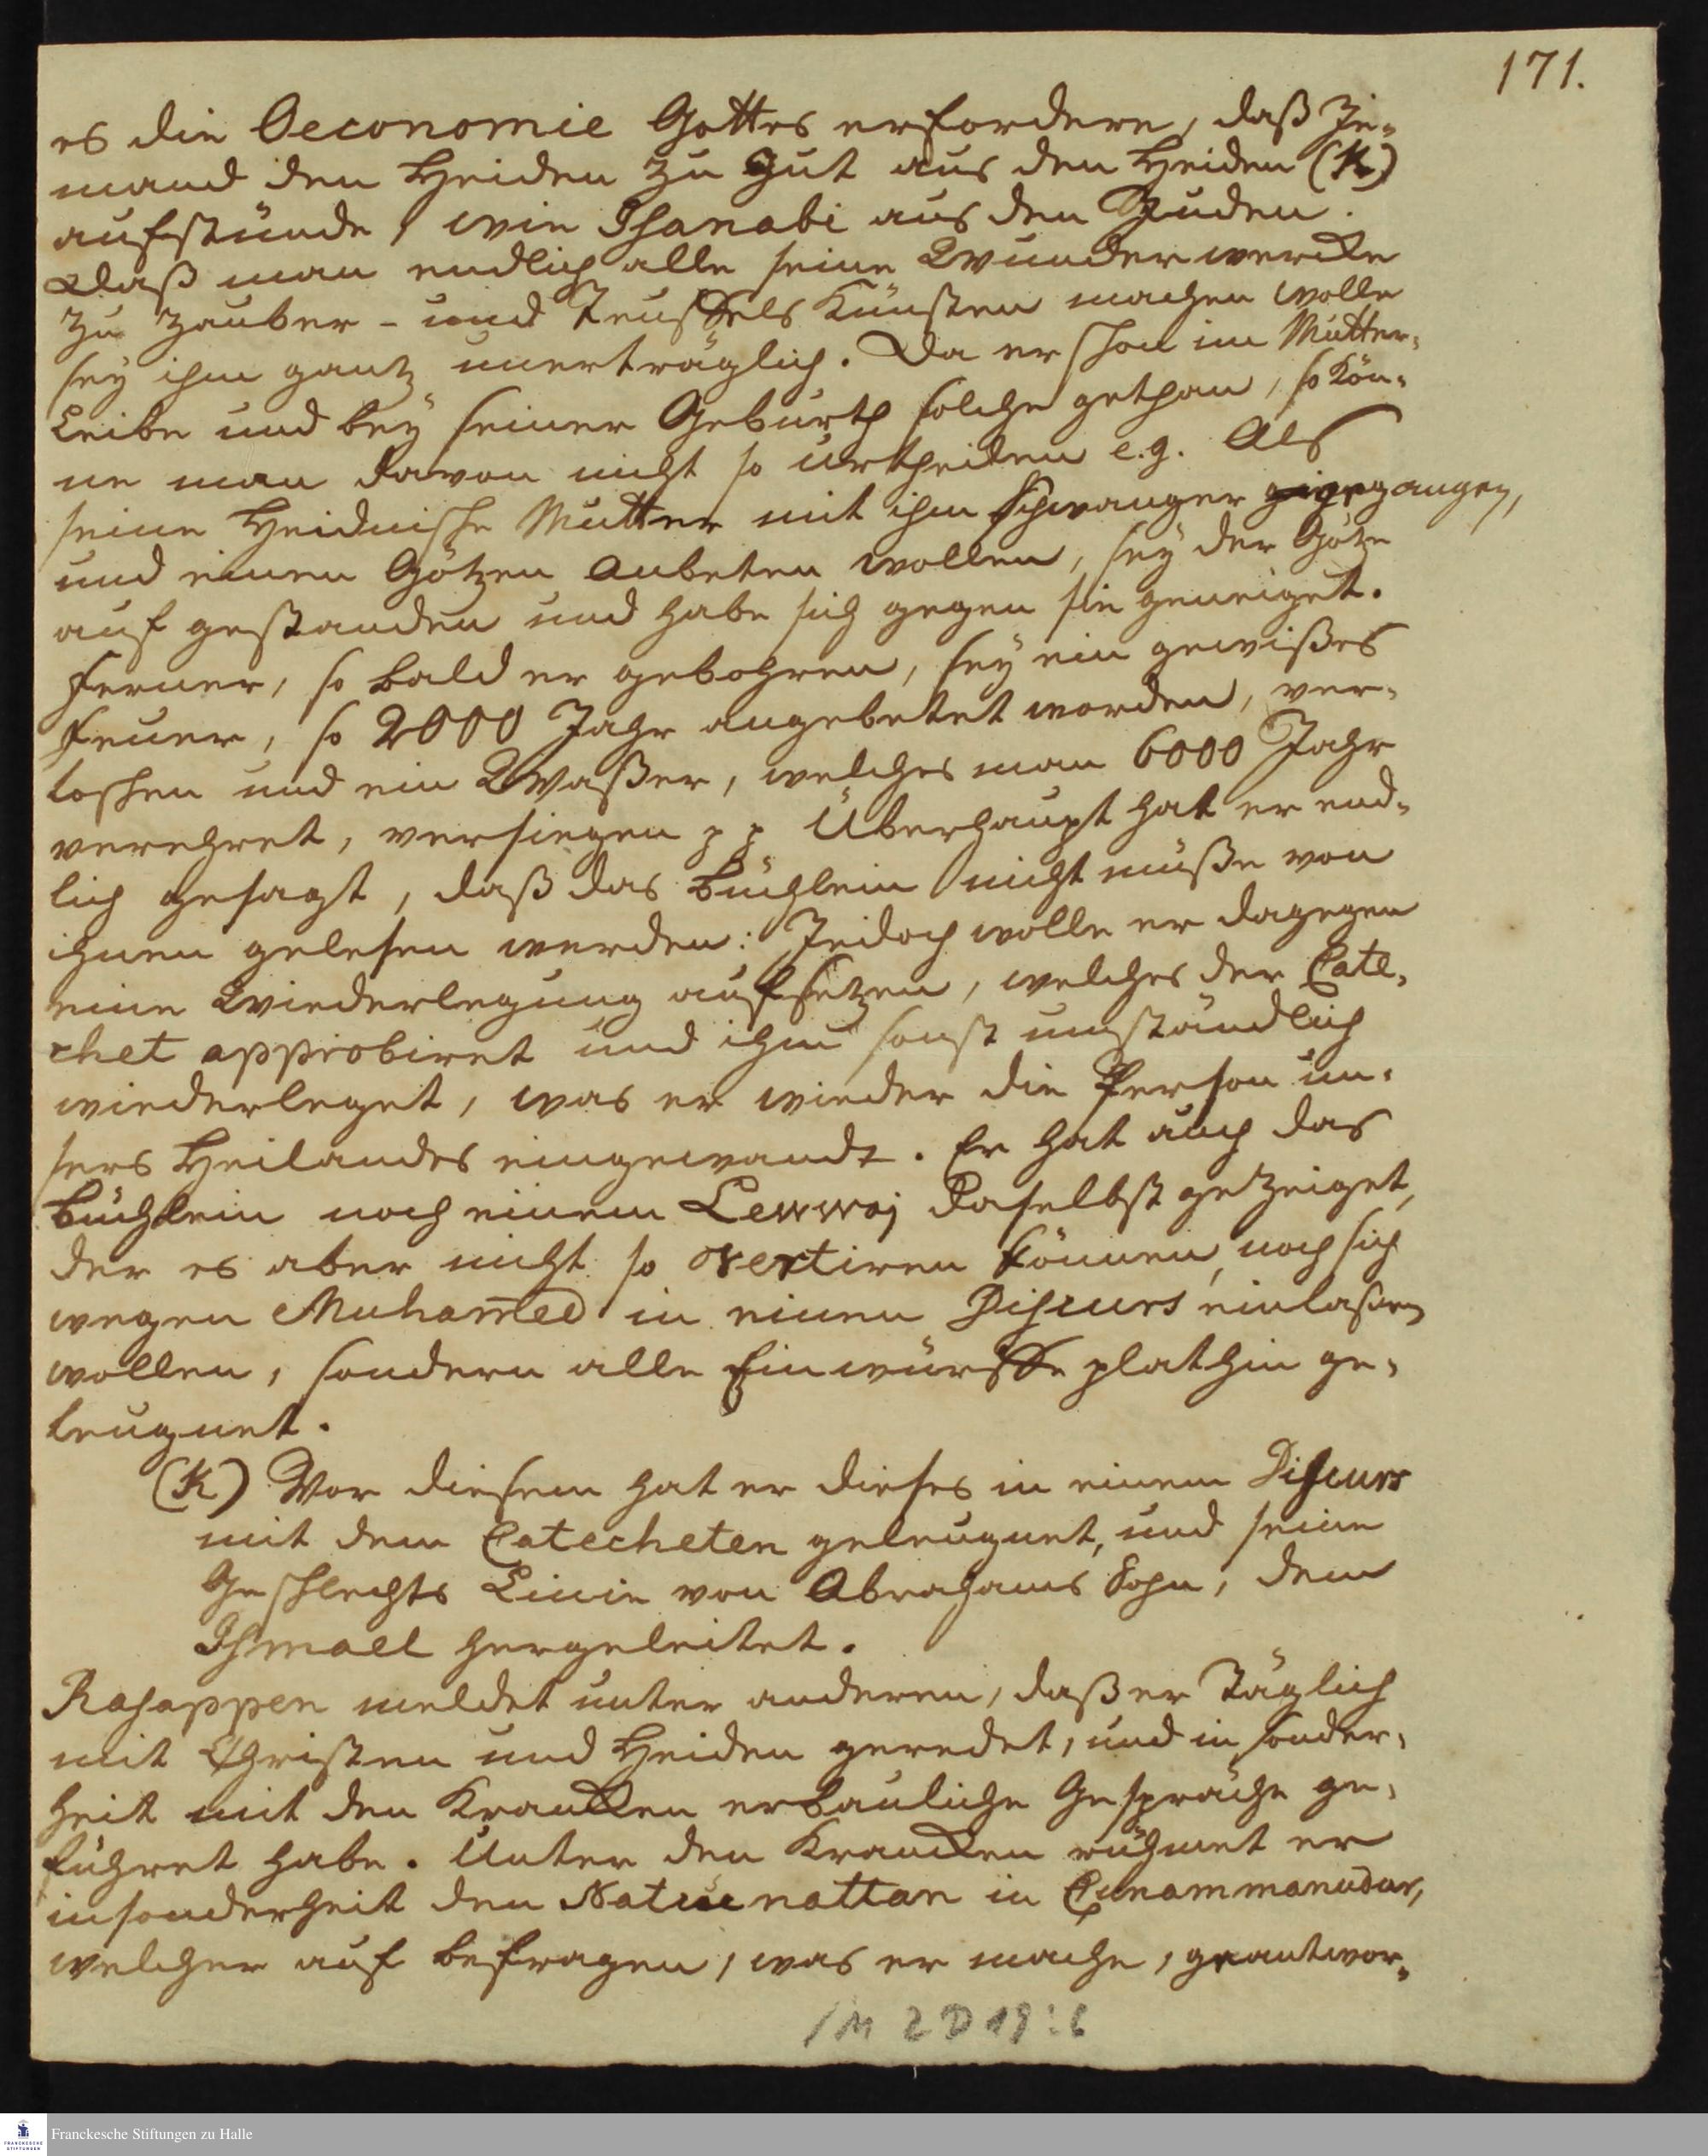 171.
es die Oeconomie Gottes erfordere, daß Je-
mand den Heiden zu gut aus den Heiden (K)
aufstünde, wie Isanabi aus den Juden.
Daß man endlich alle seine Wunderwercke
zu Zauber- und Teuffels Künsten machen wolle
sey ihm gantz unerträglich. Da er schon im Mutter-
Leibe und bey seiner Geburth solche gethan, so kön-
ne man davon nicht so urtheilen e.g. Als
seine Heidnische Mutter mit ihm schwanger gegangen,
und einen Götzen anbeten wollen, sey der Götze
auf gestanden und habe sich gegen sie geneiget.
Ferner, so bald er gebohren, sey ein gewißes
Feuer, so 2000 Jahr angebetet worden, ver-
loschen und ein Waßer, welches man 6000 Jahr
verehret, versiegen pp Überhaupt hat er end-
lich gesagt, daß das Büchlein nicht müße von
ihnen gelesen werden: Jedoch wolle er dagegen
eine Wiederlegung aufsetzen, welches der Cate-
chet approbiret und ihm sonst umständlich
wiederleget, was er wieder die Person un-
sers Heilandes eingewandt. Er hat auch das
Büchlein noch einem Lewwaj daselbst gezeiget,
der es aber nicht so vertiren können, noch sich
wegen Muham̄ed in einen Discurs einlaßen
wollen, sondern alle Einwürffe plathin ge-
leugnet.
(K) Vor diesem hat er dieses in einem Discurs
mit dem Catecheten geleugnet, und seine
Geschlechts Linie von Abrahams Sohn, dem
Ismael hergeleitet.
Rajappen meldet unter anderen, daß er täglich
mit Christen und Heiden geredet, und in sonder-
heit mit den Krancken erbauliche Gespräche ge-
führet habe. Unter den Krancken rühmet er
insonderheit den Natúenattan in Cunammanudur,
welcher auf befragen, was er mache, geantwor-
/M 2 D 19:6
Franckesche Stiftungen zu Halle
FRANCKESCHE STIFTUNGEN